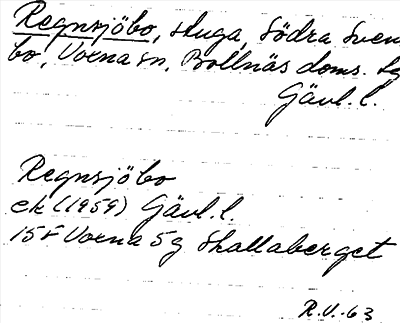 Regnsjöbo, stuga, Södra Sven
bo, Voxna sn, Bollnäs doms. sg
Gävl. l.
Regnsjöbo
ek (1959) Gävl. l.
15F Voxna 5g Skallaberget
R.V.-63